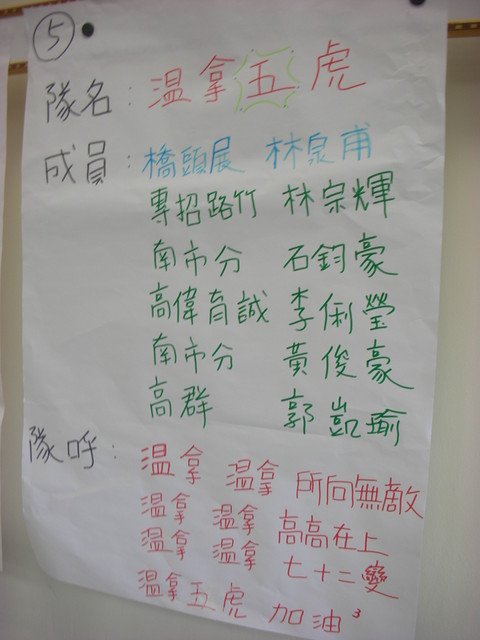 ⑤
隊名：溫拿五虎
成員：橋頭展 林泉甫
專招路竹 林宗輝
南市分 石鈞豪
高偉育誠 李俐瑩
南市分 黃俊豪
高群 郭凱瑜
隊呼：溫拿 溫拿 所向無敵
溫拿 溫拿 高高在上
溫拿 溫拿 七十二變
溫拿五虎 加油³